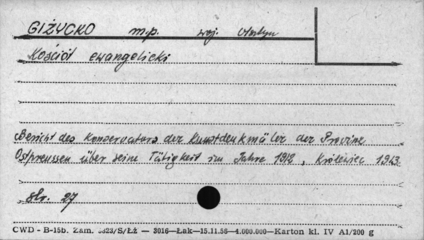 GIŻYCKO m.p. woj. Olsztyn
Kościół ewangelicki
Bericht des Konservators der Kunstdenkmäler der Provinz
Ostpreussen über seine Tätigkeit im Jahre 1912, Królewiec 1913.
Str. 27
CWD - B-15b. Zam. 3822/S/ŁŻ — 3016—Łak—15.11.56—4.000.000—Karton kl. IV A1/200 g